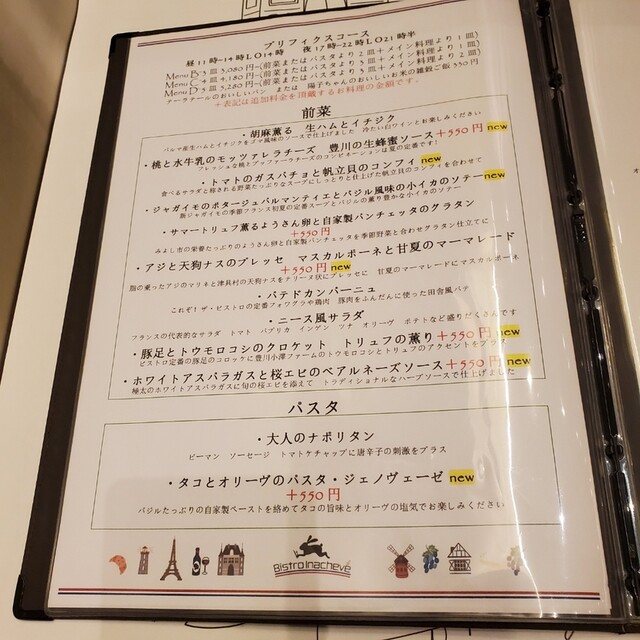 プリフィクスコース
昼 11時~14時LO14時 夜 17時~22時LO21時半
Menu B 3 皿 3,080円~(前菜またはパスタより 2 皿 + メイン料理より 1 皿)
Menu C 4 皿 4,180円~(前菜またはパスタより 3 皿 + メイン料理より 1 皿)
Menu D 5 皿 5,280円~(前菜またはパスタより 3 皿 + メイン料理より 2 皿)
ターラナールのおいしいパン または 陽子ちゃんのおいしいお米の雑穀ご飯 330円
+表記は追加料金を頂戴するお料理の金額です。
前菜
・胡麻薫る 生ハムとイチジク
パルマ産生ハムとイチジクをゴマ風味のソースで仕上げました 冷たい白ワインとお楽しみください
・桃と水牛乳のモッツァレラチーズ 豊川の生蜂蜜ソース+550円 new
フレッシュな桃とブッファーラチーズのコンビネーションは夏の定番です!
・トマトのガスパチョと帆立貝のコンフィ new
食べるサラダと称される野菜たっぷりなスープにしっとりと仕上げた帆立貝のコンフィを合わせて
・ジャガイモのポタージュパルマンティエとバジル風味の小イカのソテー new
新ジャガイモの季節フランス初夏の定番スープとバジルの薫り豊かな小イカのソテー
・サマートリュフ薫るようさん卵と自家製パンチェッタのグラタン
+550円
みよし市の栄養たっぷりのようさん卵と自家製パンチェッタを季節野菜と合わせグラタン仕立てに
・アジと天狗ナスのプレッセ マスカルポーネと甘夏のマーマレード
+550円 new
脂の乗ったアジのマリネと津具村の天狗ナスをテリーヌ状にプレッセに 甘夏のマーマレードにマスカルポーネ
・パテドカンパーニュ
これぞ!ザ・ビストロの定番フォワグラや鶏肉 豚肉をふんだんに使った田舎風パテ
・ニース風サラダ
フランスの代表的なサラダ トマト パプリカ インゲン ツナ オリーヴ ポテトなど盛りだくさんです
・豚足とトウモロコシのクロケット トリュフの薫り+550円 new
ビストロ定番の豚足のコロッケに豊川小澤ファームのトウモロコシとトリュフのアクセントをプラス
・ホワイトアスパラガスと桜エビのベアルネーズソース+550円 new
極太のホワイトアスパラガスに旬の桜エビを添えて トラディショナルなハーブソースで仕上げました
パスタ
・大人のナポリタン
ピーマン ソーセージ トマトケチャップに唐辛子の刺激をプラス
・タコとオリーヴのパスタ・ジェノヴェーゼ new
+550円
バジルたっぷりの自家製ペーストを絡めてタコの旨味とオリーヴの塩気でお楽しみください
Bistro Inachevé